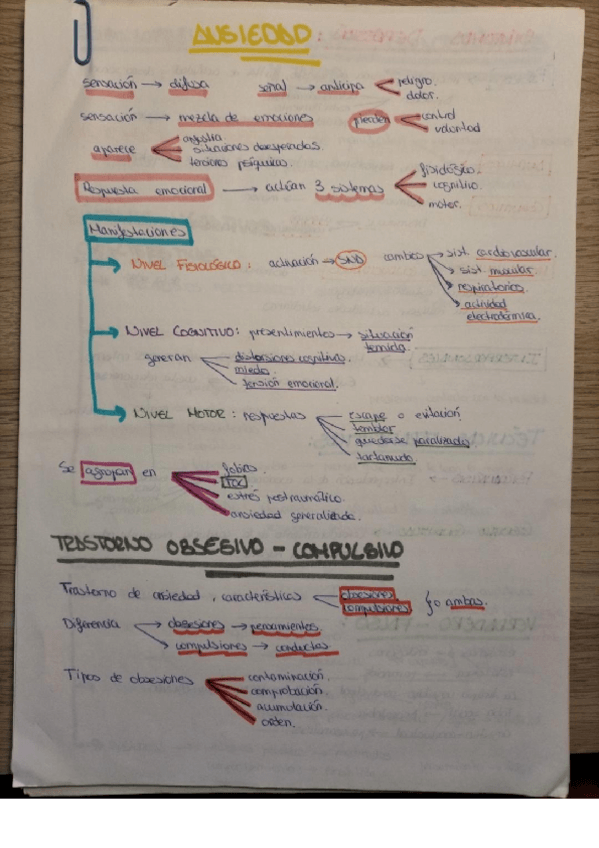 ANSIEDAD
sensación → difusa señal → anticipa peligro.
dolor.
sensación → mezcla de emociones pierden control
voluntad
aparece angustia
situaciones desesperadas.
tensiones psíquicas.
Respuesta emocional → actúan 3 sistemas fisiológico.
cognitivo.
motor.
Manifestaciones
NIVEL FISIOLÓGICO: activación → SNA cambios → sist. cardiovascular.
sist. muscular
respiratorios
actividad
electrodérmica.
NIVEL COGNITIVO: presentimientos → situación
temida.
generan distorsiones cognitivas.
miedo.
tensión emocional.
NIVEL MOTOR: respuestas escape o evitación
temblor
quedarse paralizado
tartamudo.
Se agrupan en fobias.
TOC
estrés postraumático.
ansiedad generalizada.
TRASTORNO OBSESIVO - COMPULSIVO
Trastorno de ansiedad, característicos obsesiones
compulsiones } o ambas.
Diferencia obsesiones → pensamientos.
compulsiones → conductas.
Tipos de obsesiones contaminación.
comprobación.
acumulación.
orden.